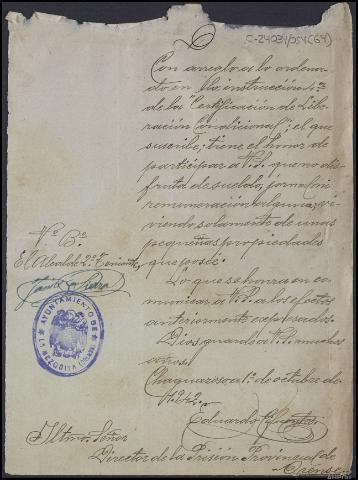 C-24034/054(64)
Con arreglo a lo ordena-
do en la instrucción 4ª
de la "Certificación de Libe-
ración Condicional"; el que
suscribe, tiene el honor de
participar a V.I. que no dis-
fruta de sueldo, jornal ni
rememoración alguna, vi-
viendo solamente de unas
pequeñas propiedades
que posée.
Lo que se honra en co-
municar a V.I. a los efectos
anteriormente expresados.
Dios guarde a V.I. muchos
años.
Chaguazoso a 1º de octubre de
1.942.-
Eduardo
Vº. Bº.
El Alcalde 2º. Teniente,
AYUNTAMIENTO DE
LA MEZQUITA (ORENSE)
Iltmo. Señor
Director de la Prisión Provincial de
Orense.-